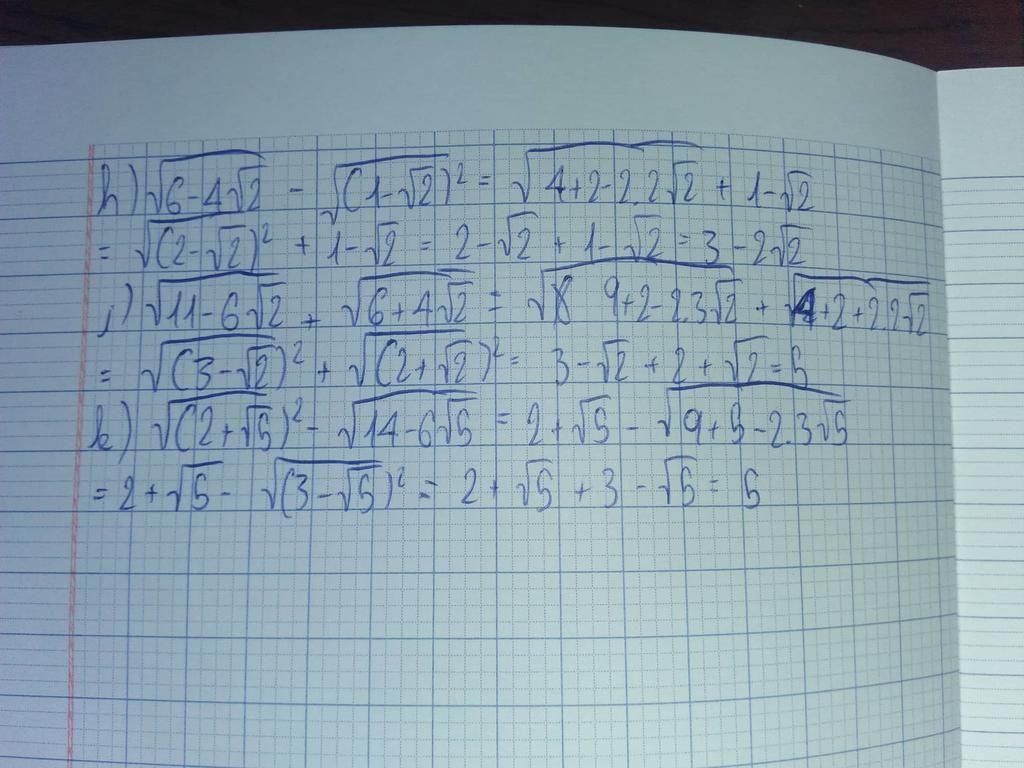 h) √(6-4√2) - √((1-√2)²) = √(4+2-2.2√2) + 1-√2
= √((2-√2)²) + 1-√2 = 2-√2 + 1-√2 = 3-2√2
j) √(11-6√2) + √(6+4√2) = √(9+2-2.3√2) + √(4+2+2.2√2)
= √((3-√2)²) + √((2+√2)²) = 3-√2+2+√2=5
k) √((2+√5)²) - √(14-6√5) = 2+√5 - √(9+5-2.3√5)
= 2+√5 - √((3-√5)²) = 2+√5+3-√5 = 5